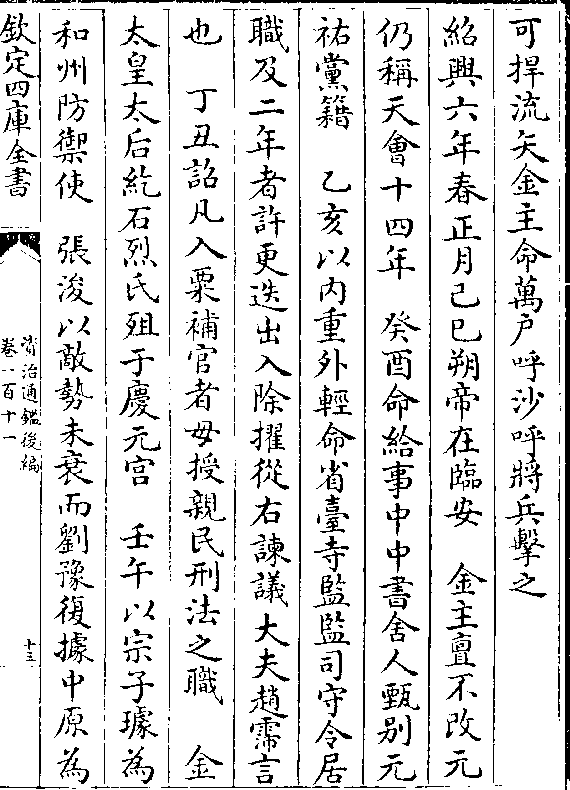 可捍流矢金主命萬户呼沙呼將兵擊之
紹興六年春正月己巳朔帝在臨安　金主亶不改元
仍稱天會十四年　癸酉命給事中中書舍人甄别元
祐黨籍　乙亥以内重外輕命省臺寺監監司守令居
職及二年者許更迭出入除擢從右諫議大夫趙霈言
也　丁丑詔凡入粟補官者毋授親民刑法之職　金
太皇太后紇石烈氏殂于慶元宫　壬午以宗子璩為
和州防禦使　張浚以敵勢未衰而劉豫復據中原為
欽定四庫全書
資治通鑑後編
卷一百十一
十三